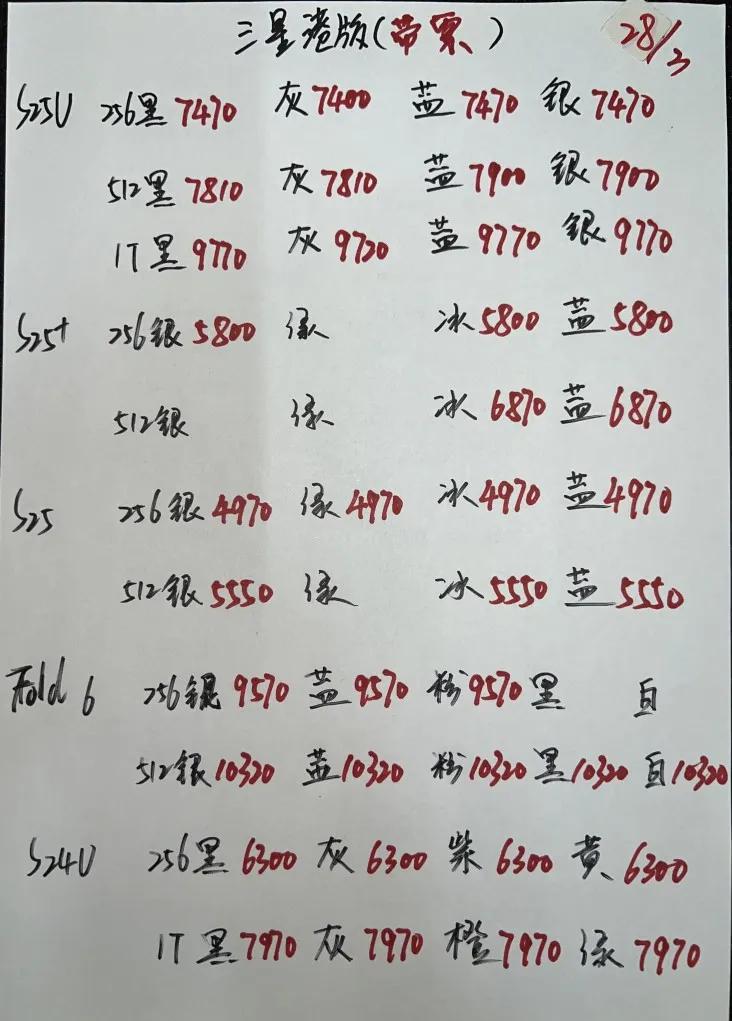 三星港版(带票) 28/3
S25U 256黑7470 灰7400 蓝7470 银7470
512黑7810 灰7810 蓝7900 银7900
1T黑9770 灰9720 蓝9770 银9770
S25+ 256银5800 绿 冰5800 蓝5800
512银 绿 冰6870 蓝6870
S25 256银4970 绿4970 冰4970 蓝4970
512银5550 绿 冰5550 蓝5550
Fold 6 256银9570 蓝9570 粉9570 黑 白
512银10320 蓝10320 粉10320 黑10320 白10320
S24U 256黑6300 灰6300 紫6300 黄6300
1T黑7970 灰7970 橙7970 绿7970